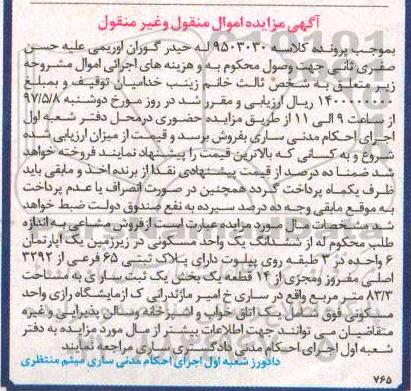 آگهی مزایده اموال منقول وغیر منقول
بموجب پرونده کلاسه ۹۵۰۳۰۳۰ له حیدر گوران اوریمی علیه حسن
صفری ثانی جهت وصول محکوم به و هزینه های اجرائی اموال مشروحه
زیر متعلق به شخص ثالث خانم زینب خدامیان توقیف و بمبلغ
۱۴۰۰۰۰۰۰۰۰ ریال ارزیابی و مقرر شد در روز مورخ دوشنبه ۹۷/۵/۸
از ساعت ۹ الی ۱۱ از طریق مزایده حضوری درمحل دفتر شعبه اول
اجرای احکام مدنی ساری بفروش برسد و قیمت از میزان ارزیابی شده
شروع و به کسانی که بالاترین قیمت را پیشنهاد نمایند فروخته خواهد
شد ضمنا ده درصد از قیمت پیشنهادی نقدا از برنده اخذ و مابقی باید
ظرف یکماه پرداخت گردد همچنین در صورت انصراف یا عدم پرداخت
به موقع مابقی وجه ده درصد سپرده به نفع صندوق دولت ضبط خواهد
شد مشخصات مال مورد مزایده عبارت است از فروش مشاعی به اندازه
طلب محکوم له از ششدانگ یک واحد مسکونی در زیرزمین یک آپارتمان
۶ واحده در ۳ طبقه روی پیلوت دارای پلاک ثبتی ۶۵ فرعی از ۳۲۹۲
اصلی مفروز ومجزی از ۱۴ قطعه یک بخش یک ثبت ساری به مساحت
۸۳/۳ متر مربع واقع در ساری خ امیر مازندرانی ک ازمایشگاه رازی واحد
مسکونی فوق شامل یک اتاق خواب و اشپزخانه وسالن پذیرایی وغیره
متقاضیان می توانند جهت اطلاعات بیشتر از مال مورد مزایده به دفتر
شعبه اول اجرای احکام مدنی دادگستری ساری مراجعه نمایند
دادورز شعبه اول اجرای احکام مدنی ساری میثم منتظری
۷۶۵